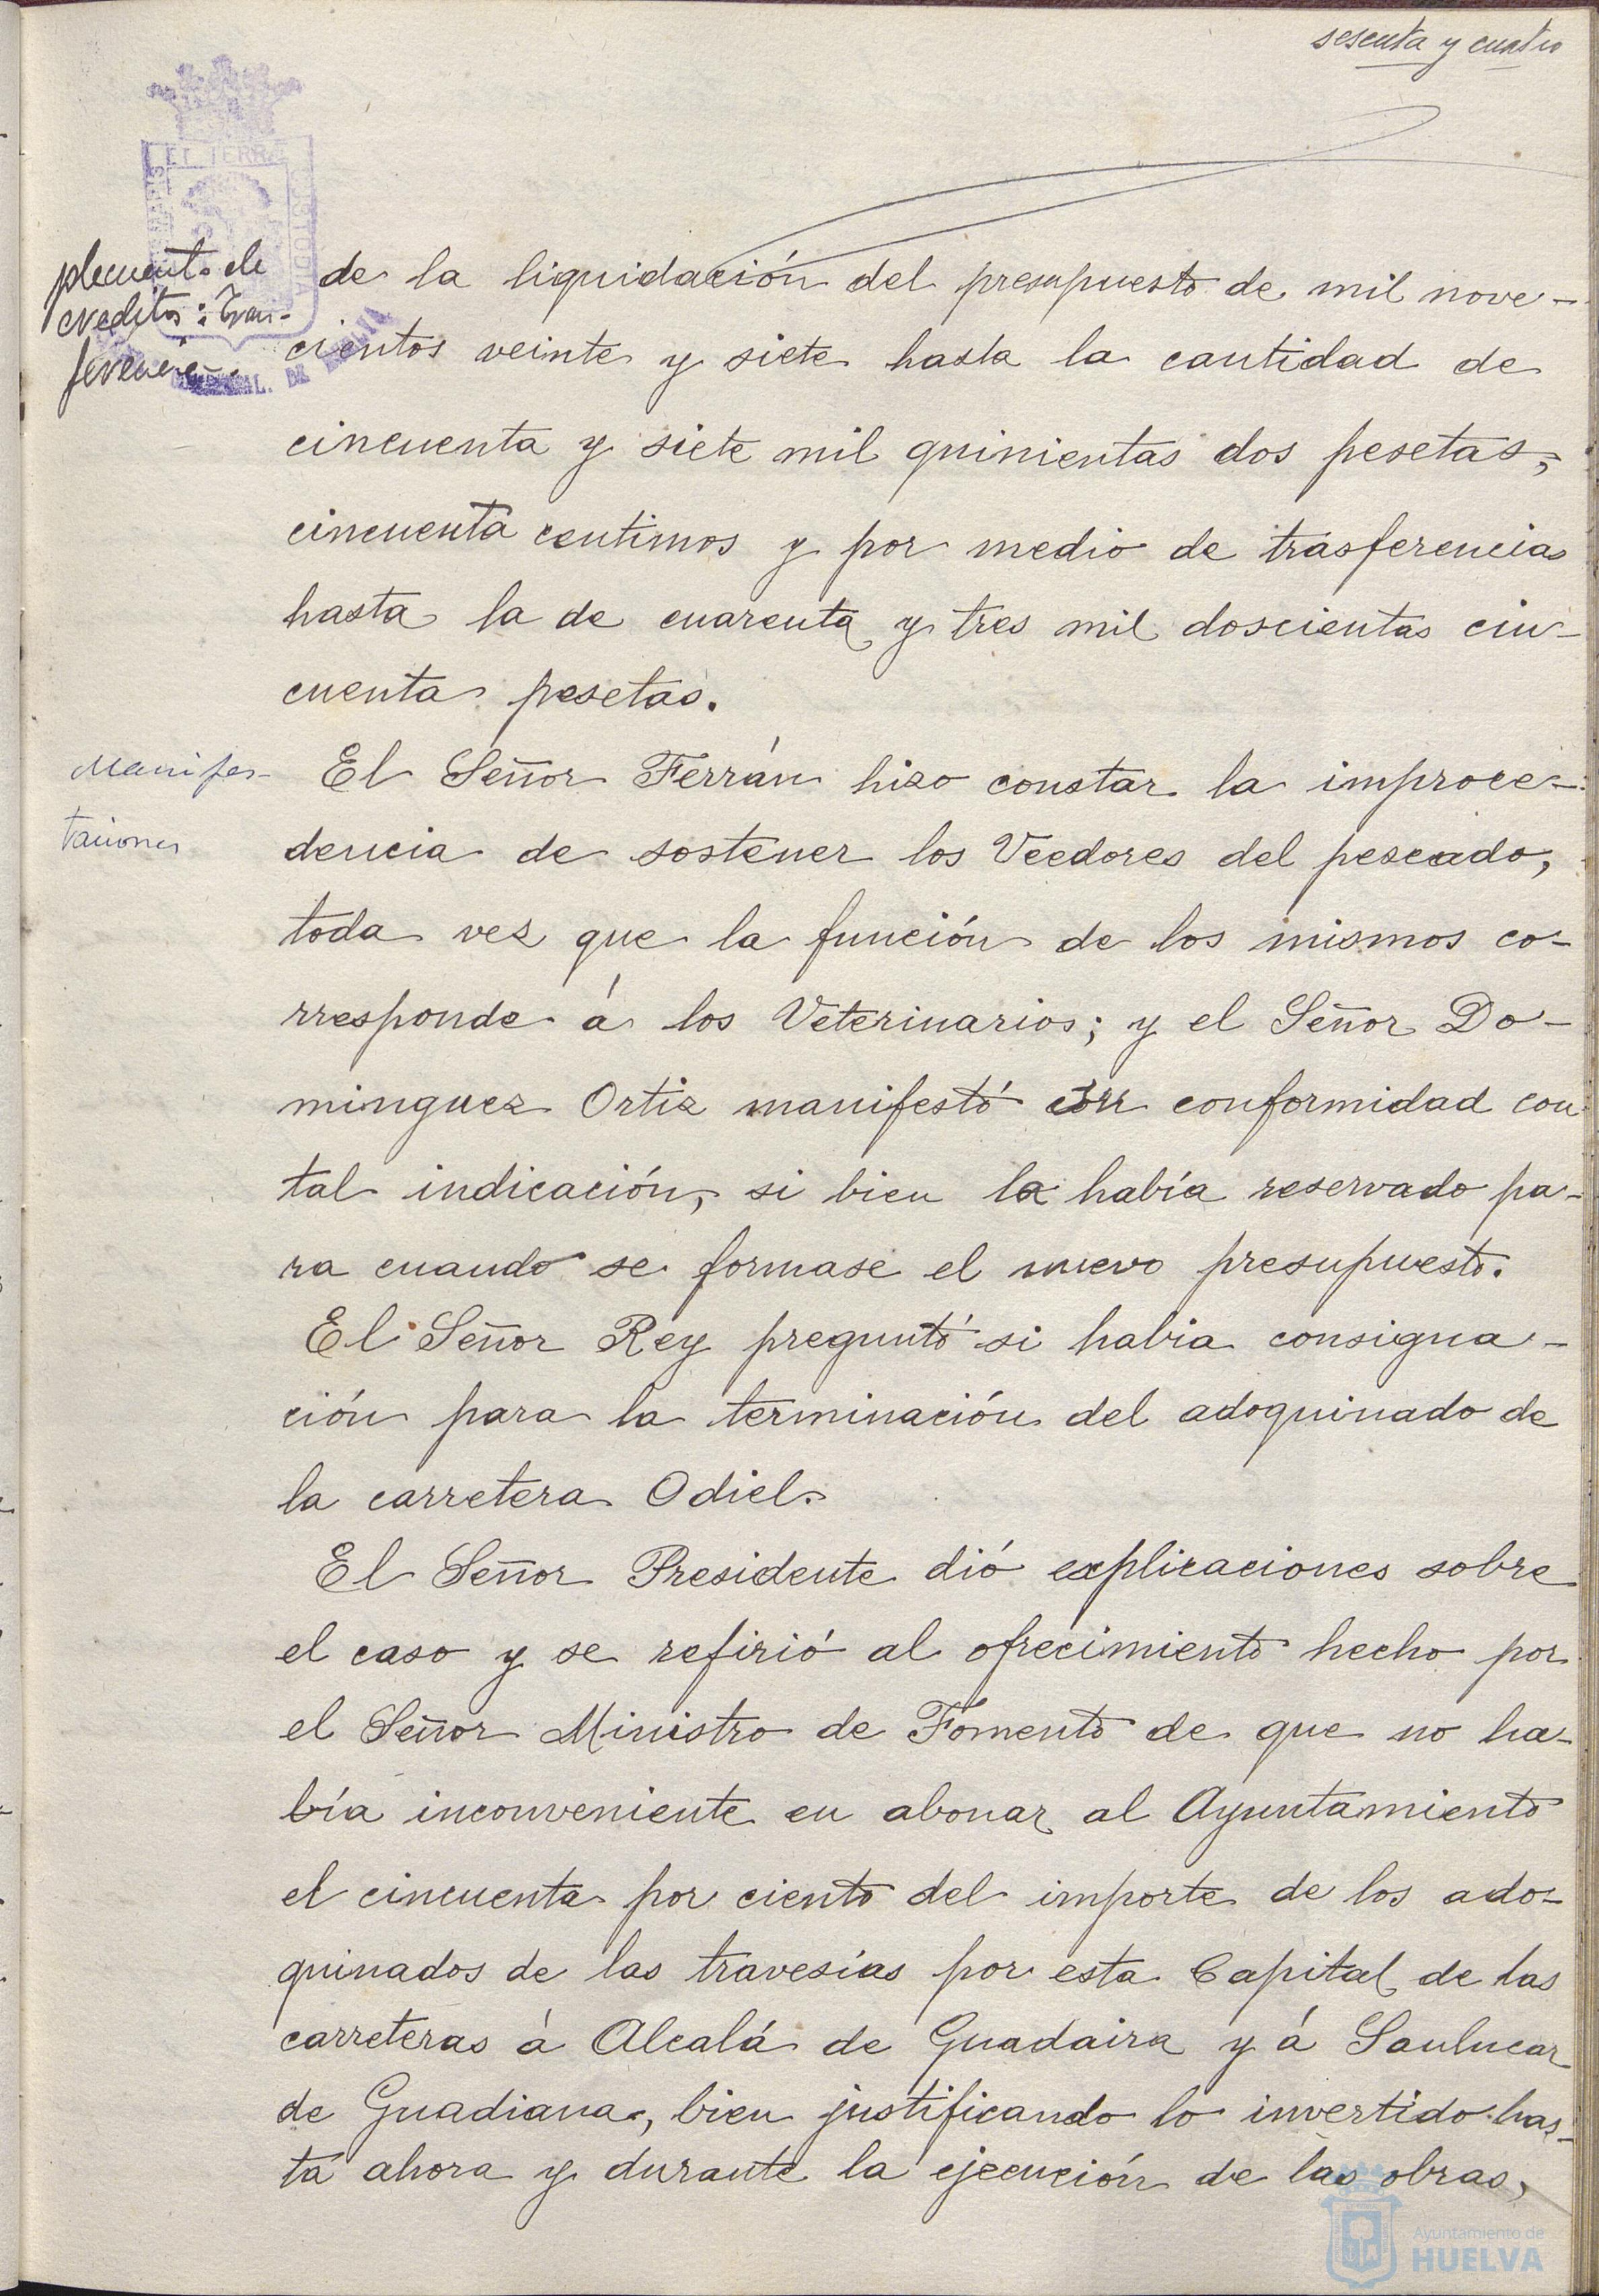 sesenta y cuatro
plemento de
creditos: Tran-
ferencia
de la liquidación del presupuesto de mil nove-
cientos veinte y siete hasta la cantidad de
cincuenta y siete mil quinientas dos pesetas,
cincuenta centimos y por medio de trasferencias
hasta la de cuarenta y tres mil doscientas cin-
cuenta pesetas.
Manifes-
taciones
El Señor Ferrán hizo constar la improce-
dencia de sostener los Veedores del pescado,
toda vez que la función de los mismos co-
rresponde á los Veterinarios; y el Señor Do-
minguez Ortiz manifestó conformidad con
tal indicación, si bien la había reservado pa-
ra cuando se formase el nuevo presupuesto.
El Señor Rey preguntó si habia consigna-
ción para la terminación del adoquinado de
la carretera Odiel.
El Señor Presidente dió explicaciones sobre
el caso y se refirió al ofrecimiento hecho por
el Señor Ministro de Fomento de que no ha-
bía inconveniente en abonar al Ayuntamiento
el cincuenta por ciento del importe de los ado-
quinados de las travesías por esta Capital de las
carreteras á Alcalá de Guadaira y á Sanlucar
de Guadiana, bien justificando lo invertido has-
ta ahora y durante la ejecución de las obras,
Ayuntamiento de
HUELVA